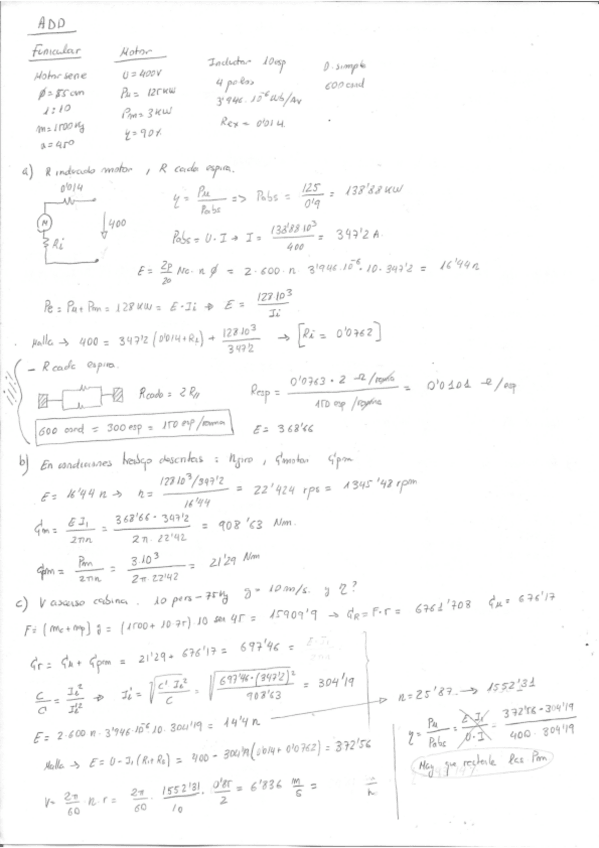 ADD
Funicular
Motor serie
φ = 85 cm
1:10
m = 1500 kg
α = 45º
Motor
U = 400V
Pu = 125 KW
Pm = 3 KW
η = 90%
Inductor 10esp
4 polos
3'946·10⁻⁶ Wb/Av
Rex = 0'014
D. simple
600 cond
a) R inducido motor, R cada espira.
0'014
M
Ri
400
η = Pu/Pabs => Pabs = 125/0'9 = 138'88 KW
Pabs = U·I → I = 138'88 10³/400 = 347'2 A
E = 2p/2a Nc·n φ = 2·600·n·3'946·10⁻⁶·10·347'2 = 16'44n
Pe = Pu + Pm = 128 KW = E·Ii → E = 128 10³/Ii
Malla → 400 = 347'2 (0'014+Ri) + 128 10³/347'2 → [Ri = 0'0762]
- R cada espira.
Rcada = 2 Ri
Resp = 0'0763 · 2 Ω/rama / 150 esp/rama = 0'0101 Ω/esp
600 cond = 300 esp = 150 esp/rama
E = 368'66
b) En condiciones trabajo descritas: n giro, motor pm
E = 16'44 n → n = 128 10³/347'2 / 16'44 = 22'424 rps = 1345'48 rpm
m = E Ii/2πn = 368'66 · 347'2 / 2π · 22'42 = 908'63 Nm.
pm = Pm/2πn = 3·10³/2π·22'42 = 21'29 Nm
c) V ascenso cabina. 10 pers - 75Kg g = 10 m/s. y η?
F = (mc+mp) g = (1500 + 10·75)·10 sen 45 = 15909'9 → R = F·r = 6761'708 u = 676'17
r = u + pm = 21'29 + 676'17 = 697'46 =
C/C' = Ii²/Ii'² → Ii' = √(C' Ii²/C) = √(697'46·(347'2)²/908'63) = 304'19
E = 2·600 n·3'946·10⁻⁶·10·304'19 = 14'4 n
n = 25'87 → 1552'31
Malla → E = U - Ii (Ri+Rs) = 400 - 304'19 (0'014 + 0'0762) = 372'56
η = Pu/Pabs = E·Ii/U·I = 372'56·304'19/400·304'19
Hay que restarle las Pm
V = 2π/60 n·r = 2π/60 · 1552'31/10 · 0'85/2 = 6'836 m/s =